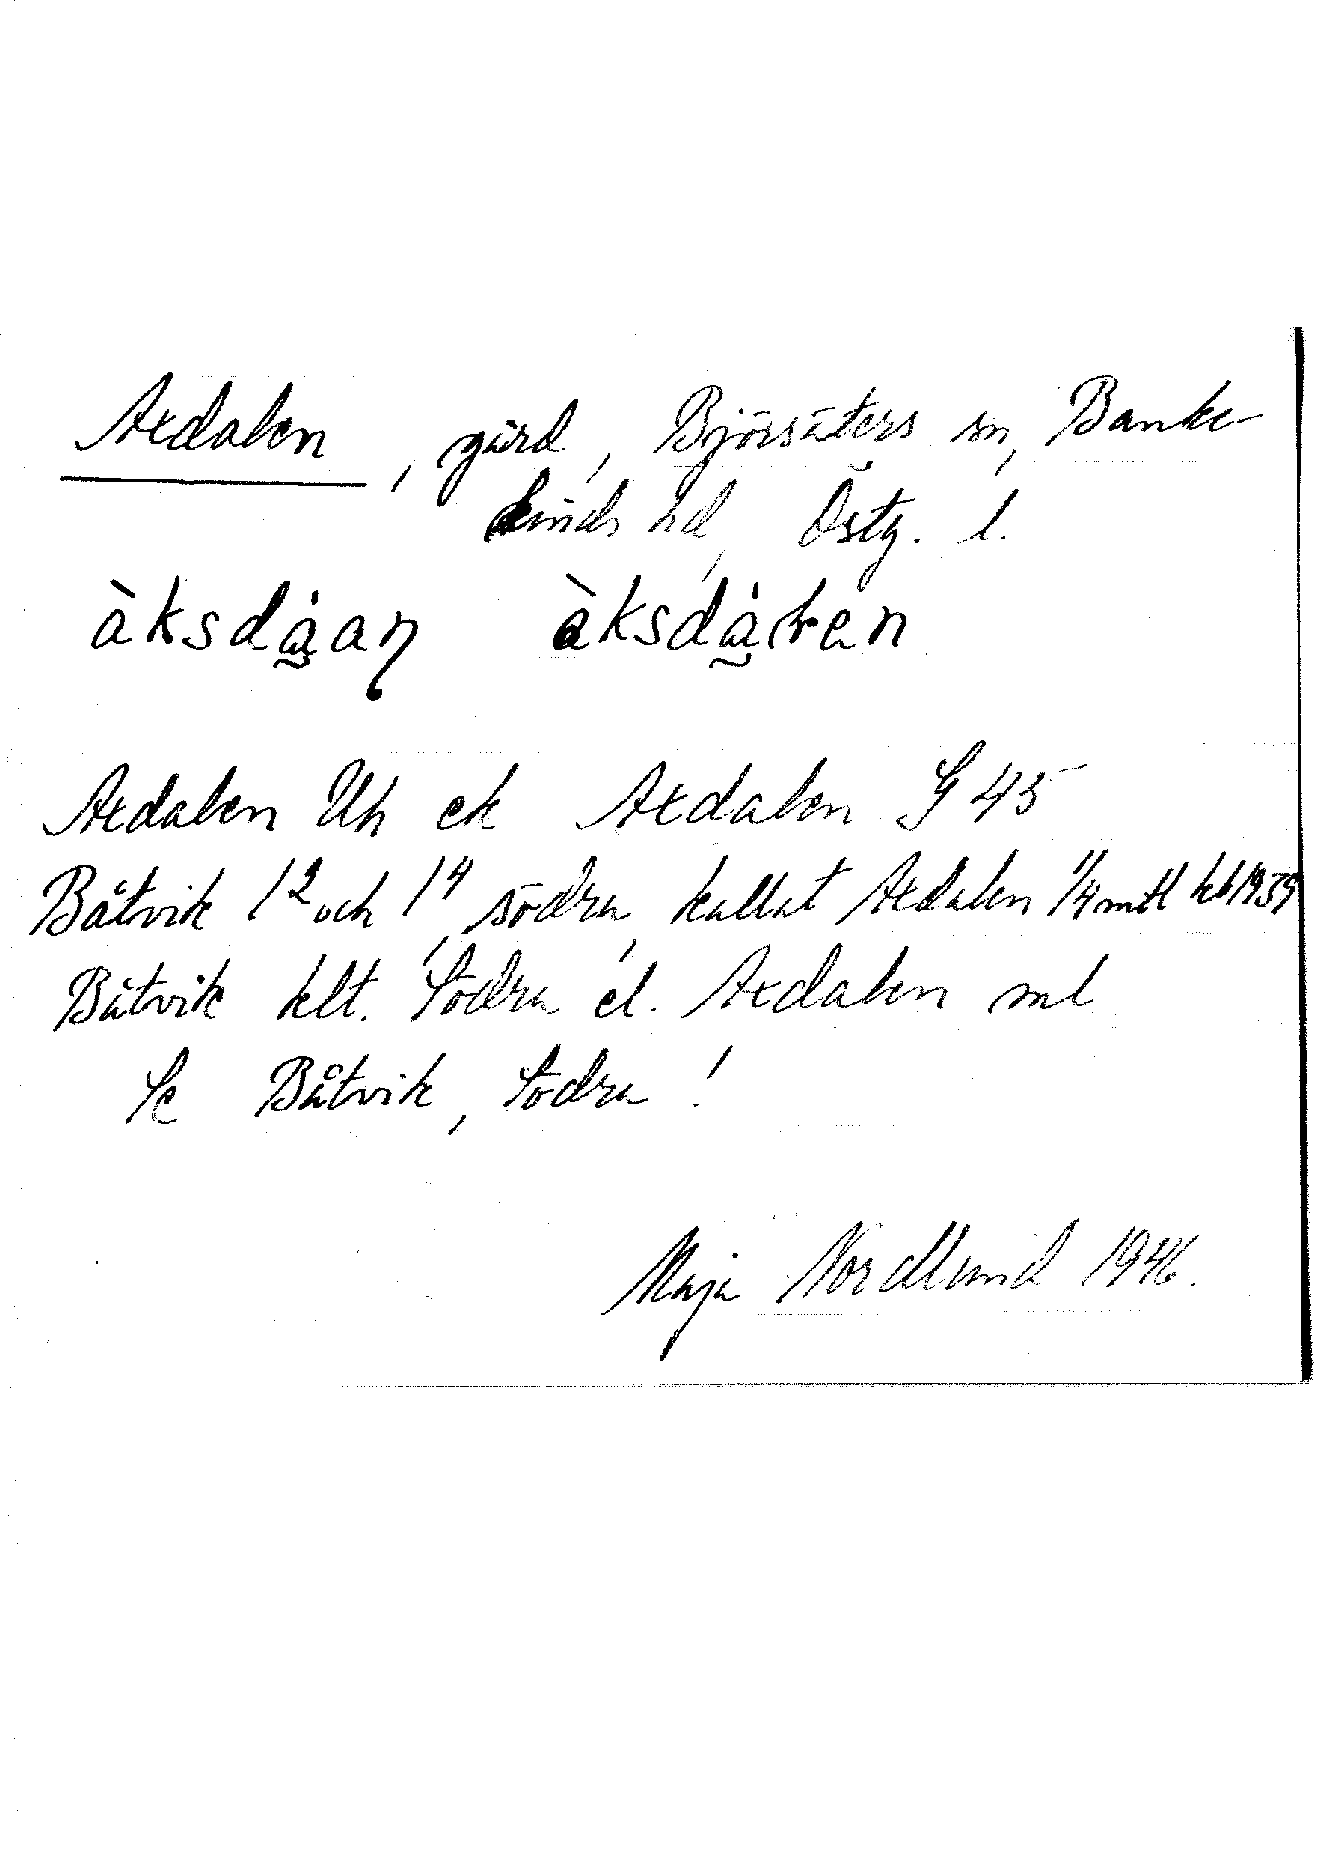 Axdalen, gård, Björsäters sn, Banke-
kinds hd, Östg. l.
àksdá̰aŋ àksdá̰ren
Axdalen Uh ek Axdalen G 45
Båtvik 1² och 1⁴, södra, kallat Axdalen 1/4 mtl Jb 1939
Båtvik klt. Södra el. Axdalen ml
Se Båtvik, Södra!
Maja Nordlund 1946.